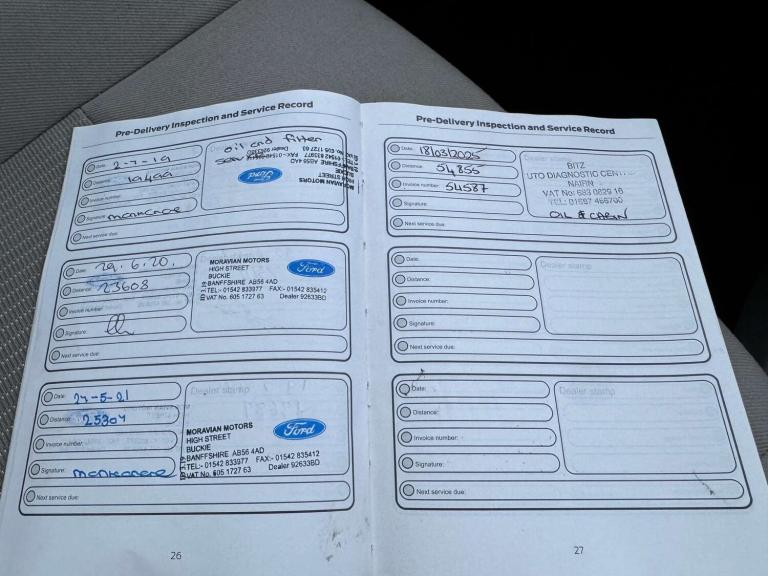 Pre-Delivery Inspection and Service Record
Date: 2-7-19
Distance:
Invoice number:
Signature:
Next service due:
Dealer
oil and filter
MORAVIAN MOTORS
HIGH STREET
BUCKIE
BANFFSHIRE AB56 4AD
Ford
Date: 29.6.20.
Distance: 23608
Invoice number:
Signature:
Next service due:
MORAVIAN MOTORS
HIGH STREET
BUCKIE
BANFFSHIRE AB56 4AD
TEL:- 01542 833977 FAX:- 01542 835412
VAT No. 605 1727 63 Dealer 92633BD
Ford
Date: 24-5-21
Distance: 25304
Invoice number:
Signature:
Next service due:
Dealer stamp
MORAVIAN MOTORS
HIGH STREET
BUCKIE
BANFFSHIRE AB56 4AD
TEL:- 01542 833977 FAX:- 01542 835412
VAT No. 605 1727 63 Dealer 92633BD
Ford
26
Pre-Delivery Inspection and Service Record
Date: 18/03/2025
Distance: 54855
Invoice number: 54587
Signature:
Next service due:
Dealer stamp
BITZ
UTO DIAGNOSTIC CENT
NAIRN
VAT No: 683 0829 16
TEL: 01667 456700
OIL & CABIN
Date:
Distance:
Invoice number:
Signature:
Next service due:
Dealer stamp
Date:
Distance:
Invoice number:
Signature:
Next service due:
Dealer stamp
27